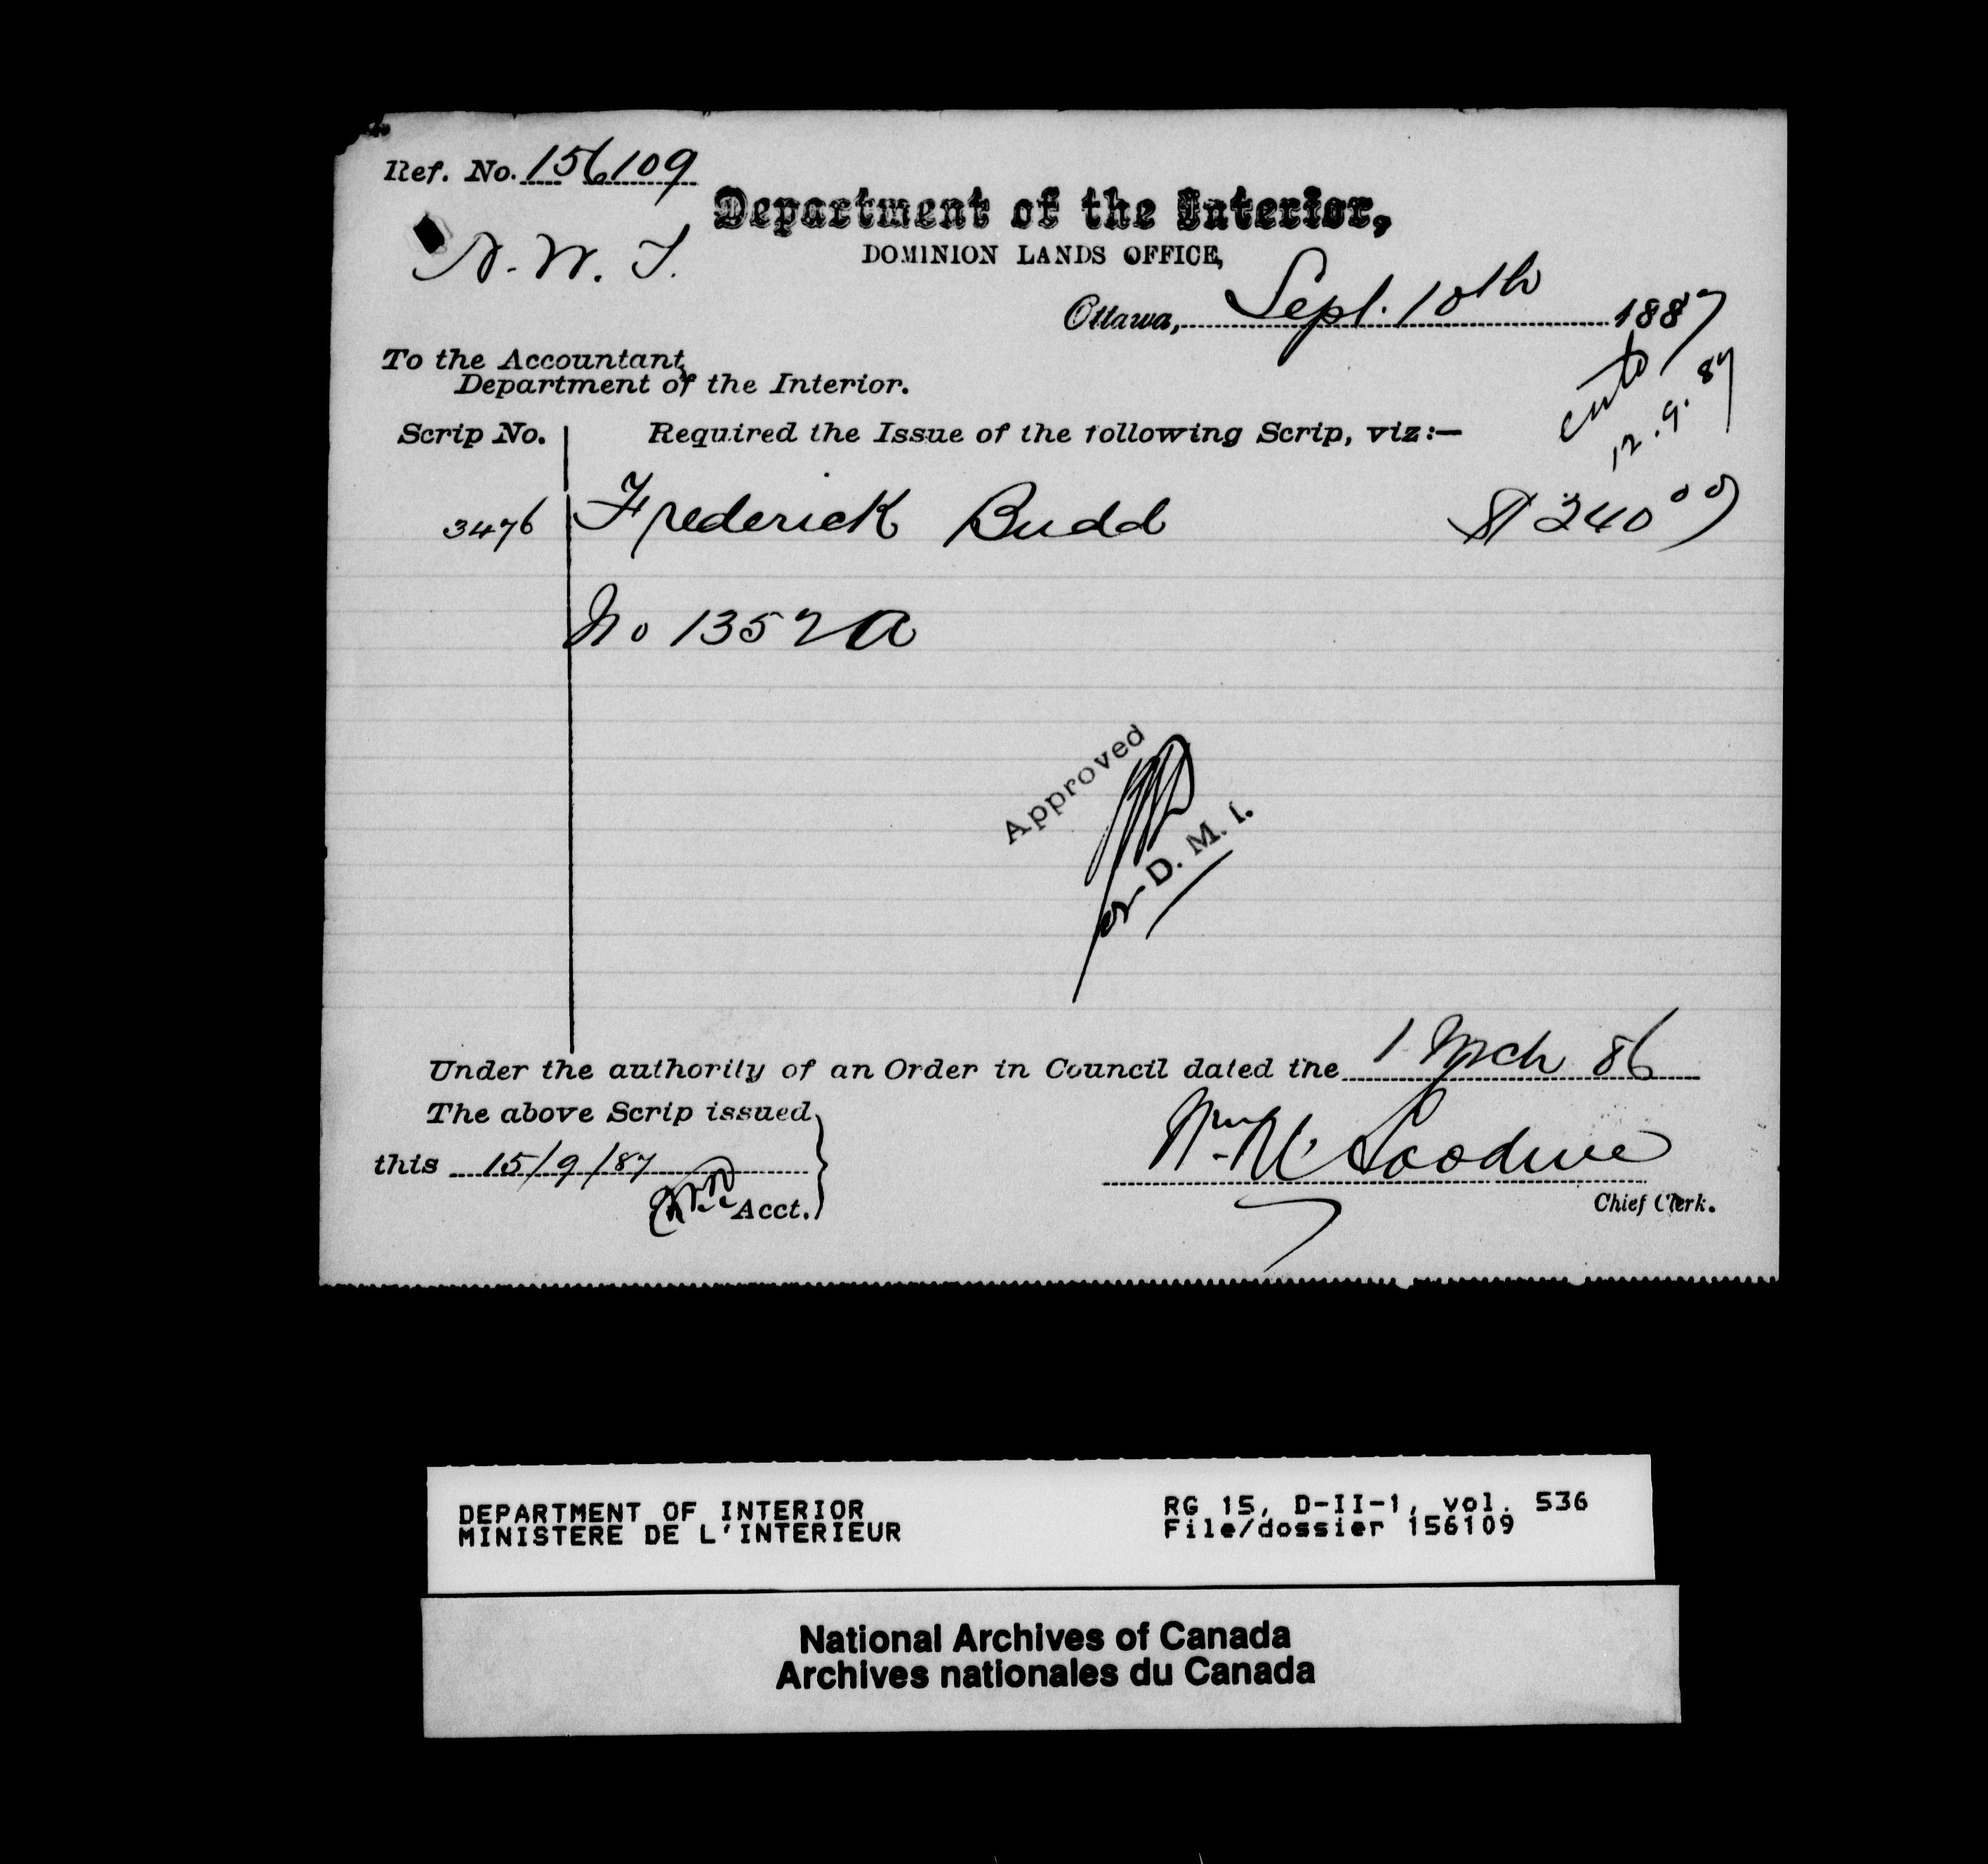 Ref. No. 156109
N. W. T.
Department of the Interior,
DOMINION LANDS OFFICE,
Ottawa, Sept. 10th 1887
To the Accountant,
Department of the Interior.
12.9.87
Scrip No. Required the Issue of the following Scrip, viz:—
3476 Frederick Budd $240 00
No 1352 A
Approved
for D. M. I.
Under the authority of an Order in Council dated the 1 Mch 86
The above Scrip issued
this 15/9/87
Acct.
Wm M Goodeve
Chief Clerk.
DEPARTMENT OF INTERIOR
MINISTERE DE L'INTERIEUR
RG 15, D-II-1, vol. 536
File/dossier 156109
National Archives of Canada
Archives nationales du Canada